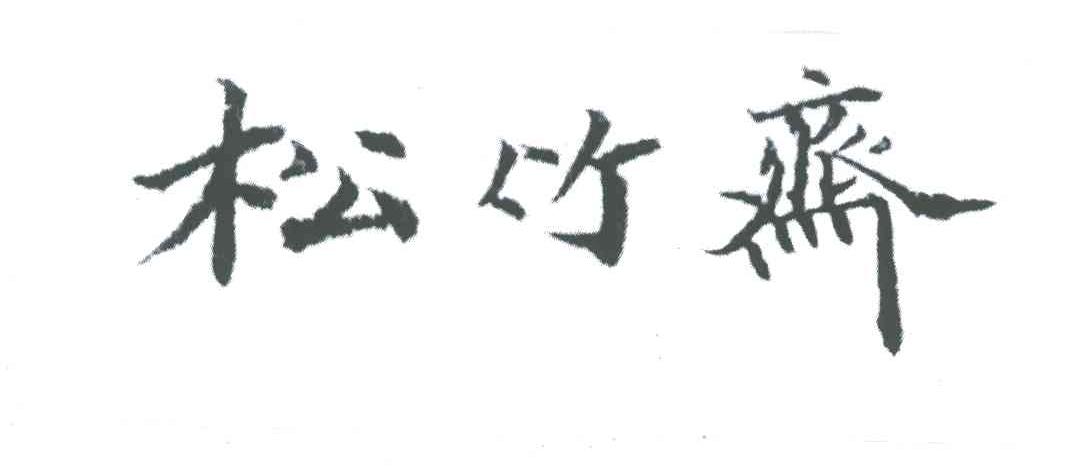 松竹齋